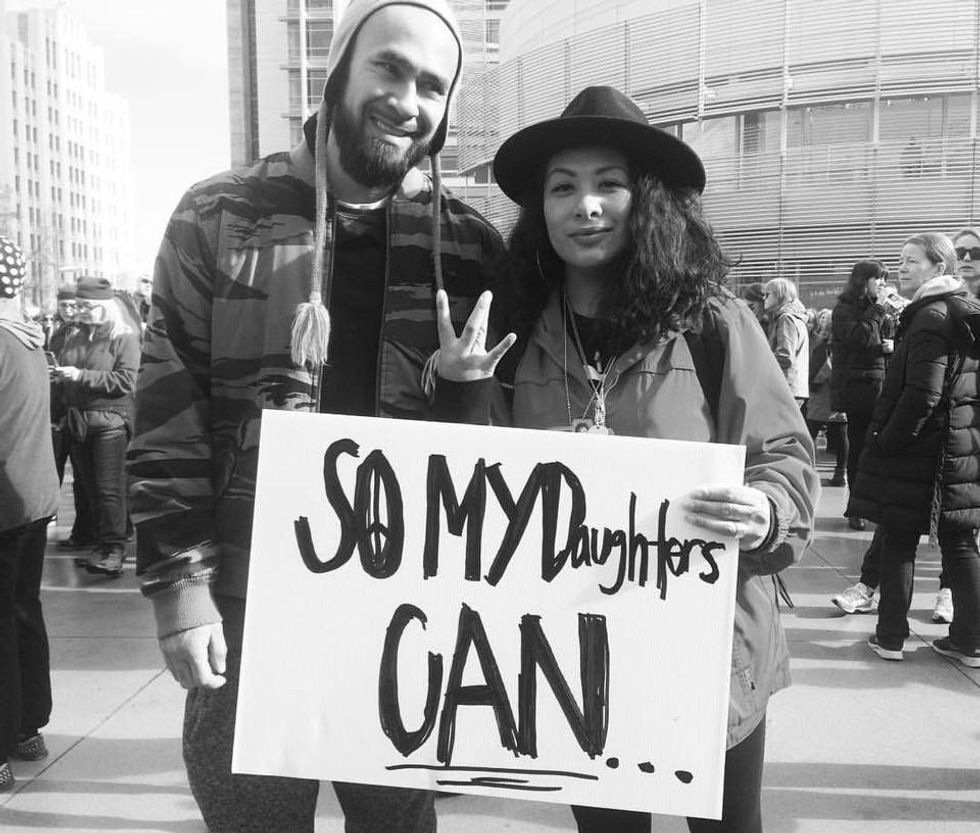 SO MY Daughters
CAN...